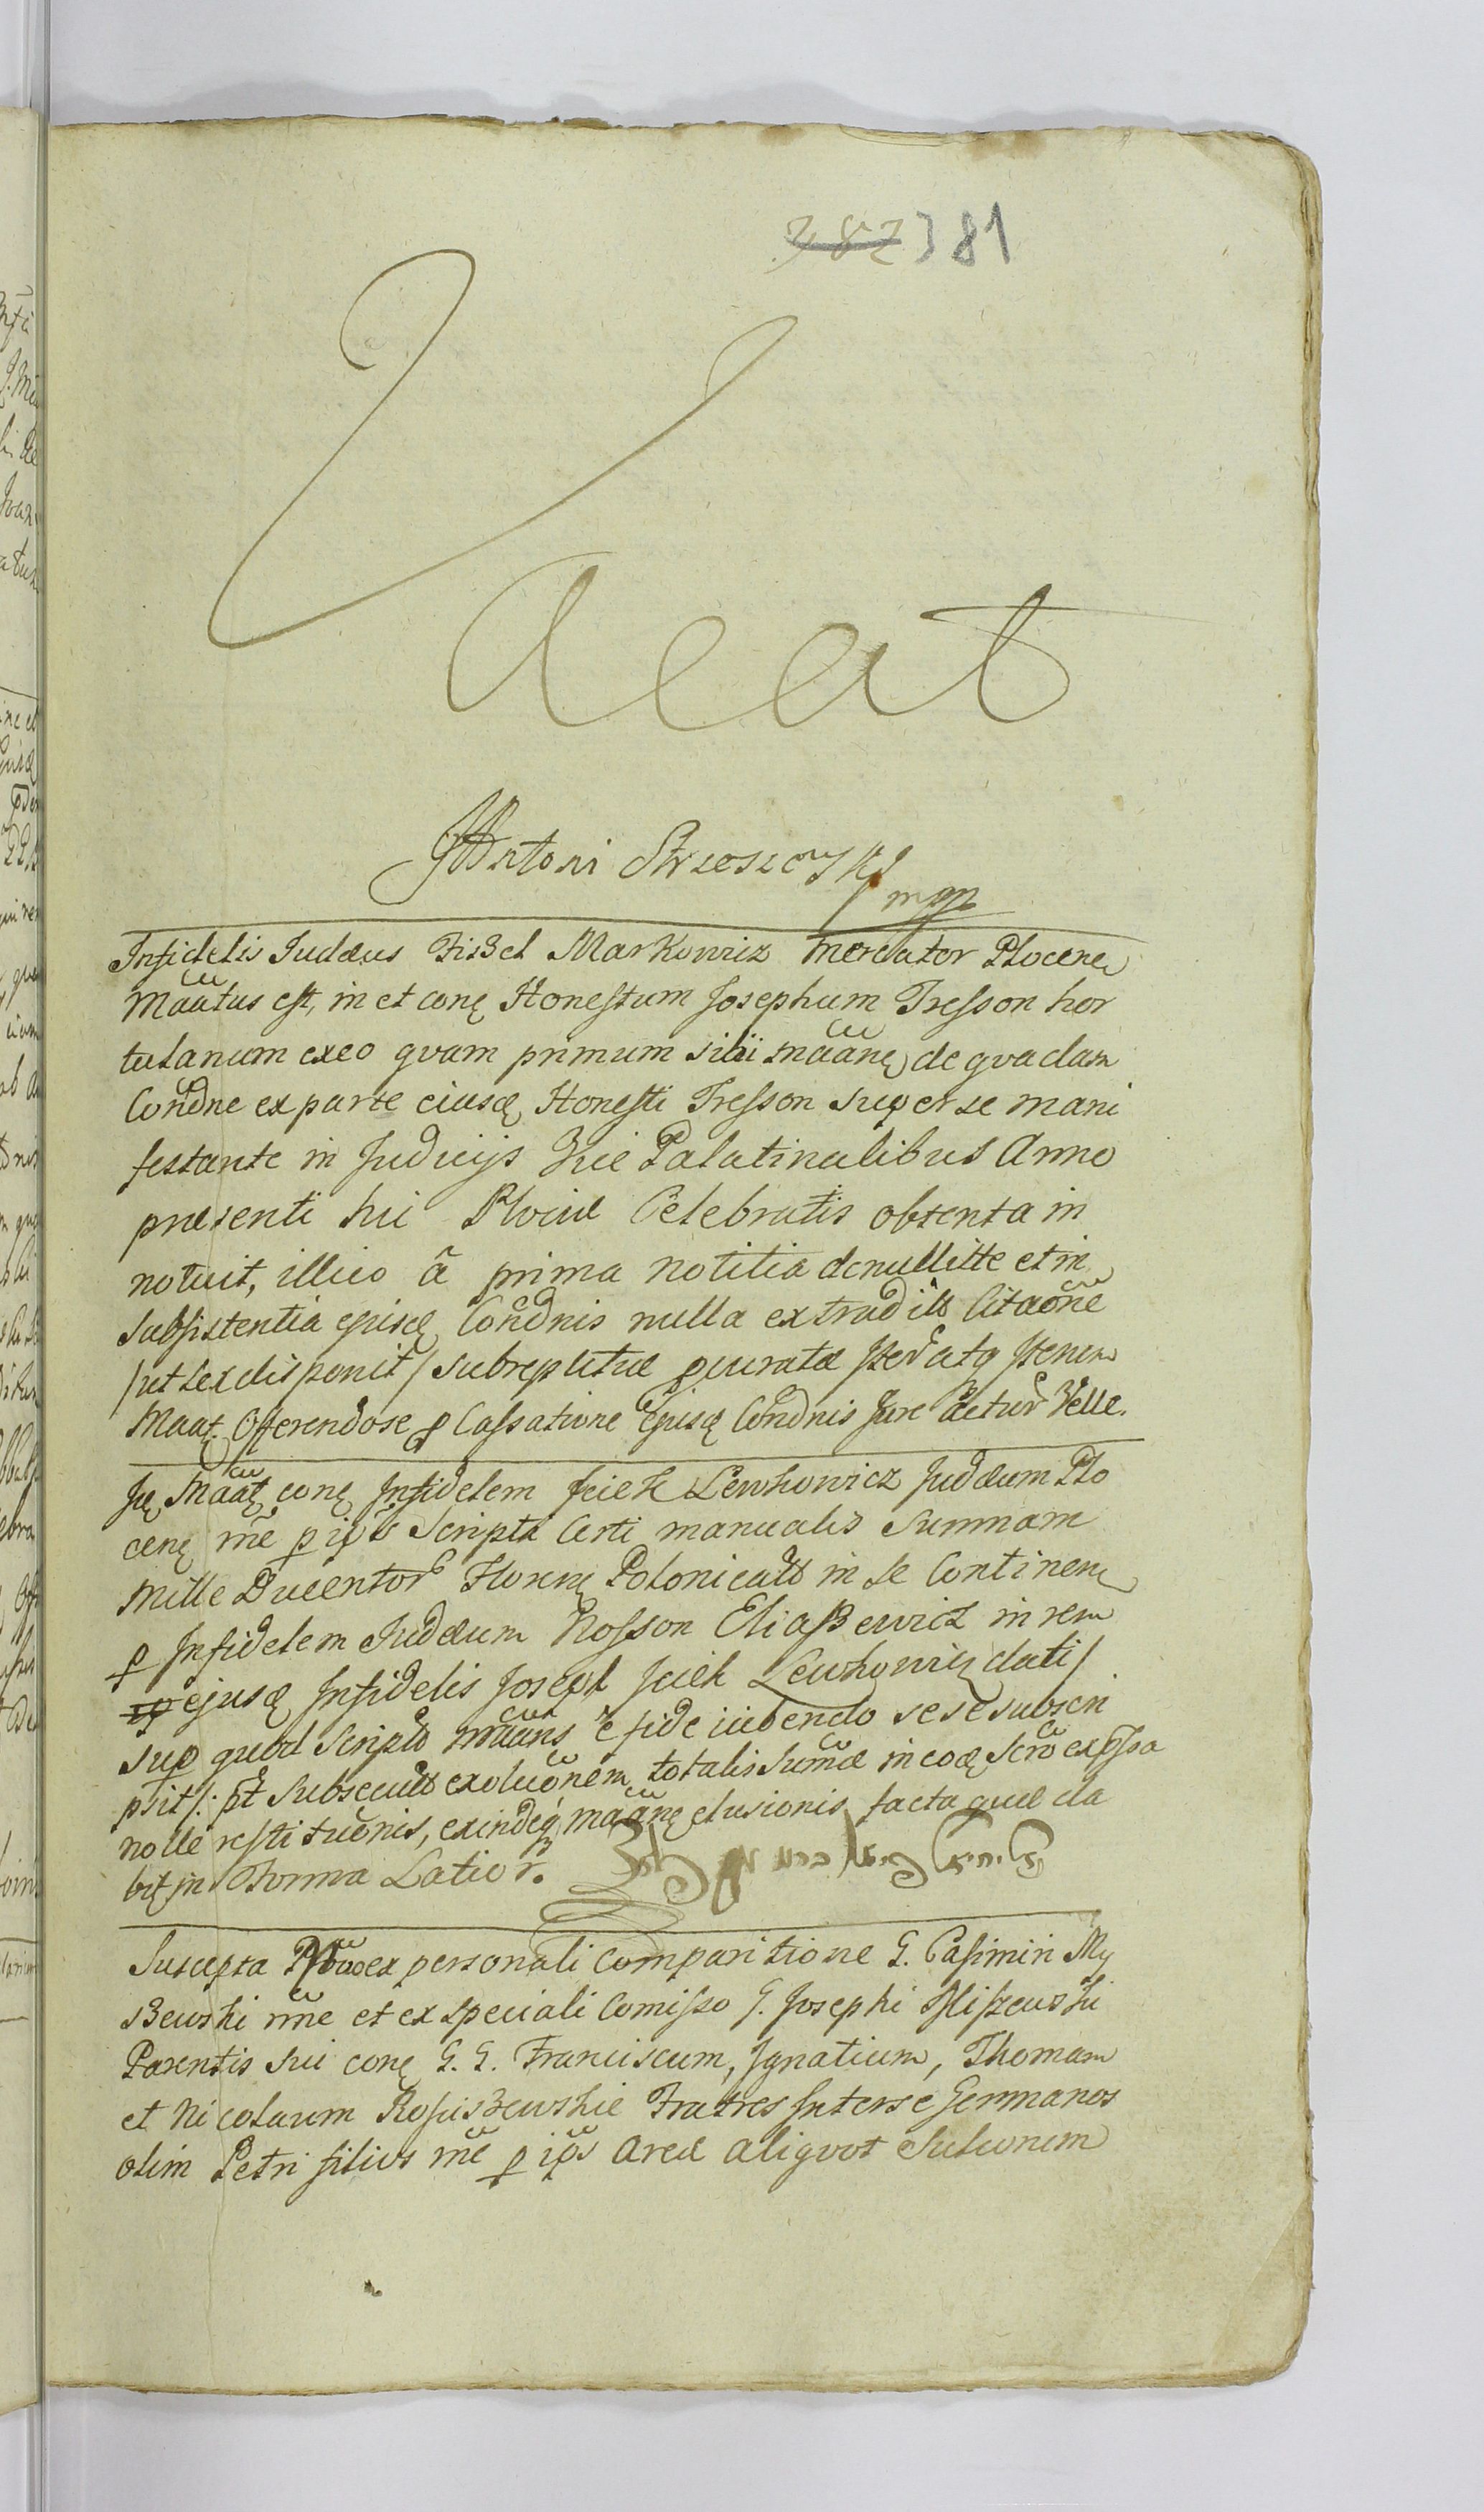 387 381
Vacat
Antoni Strzeszewski mpp
Infidelis Judæus Fiszel Markowicz mercator Plocen
Maatus est, in et con Honestum Josephum Tresson hor
tulanum ex eo qvam primum sibi maãne de qvadam
Condne ex parte eiusd Honesti Tresson super se mani
festante in Judicijs Palatinalibus Anno
præsenti hic Plociæ Celebratis obtenta in
notuit, illico â prima notitia de nullitte et in
subsistentia ejusd Condnis nulla extradit Citaõne
/ut Lex disponit/ subreptitiæ procuratæ Iterato Itenm
Maat. Offerendo se p Cassatione Ejusd Condnis Jure actur Velle.
Id Maat con Infidelem Jciek Lewkowicz Judæum Plo
cen rne p ips Scripti Certi manualis Summam
Mille Ducentor Floren Polonicall in se Continen
p Infidelem Judæum Nosson Eliaszewicz in rem
ejusd Infidelis Joseph Jciek Lewkowicz dati/
sup quod Scripto maans e fide iubendo sese subscri
psit/: pt subsecuta exolucõnem totalis Summæ in eod Scro exprssa
nolle restitucõnis, exindeq maãne elusionis facta quæ da
bit in Forma Latior.
Suscepta Ptõe ex personali Comparitione G. Casimiri My
szewski nne et ex speciali Comisso G. Josephi Myszewski
Parentis sui con G. G. Franciscum, Ignatium, Thomam
et Nicolaum Rosciszewskie Fratres Inter se Germanos
olim Petri filios rne p ips Areæ aliqvot Sulcorum